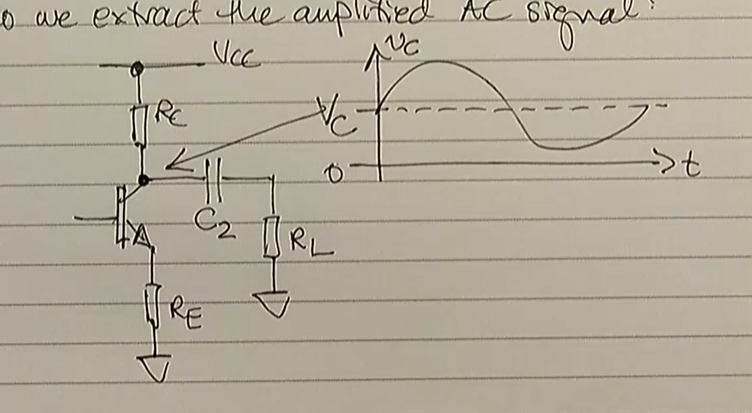 o we extract the amplified AC signal?
Vcc
vc
Rc
Vc
0
t
C2
RL
RE